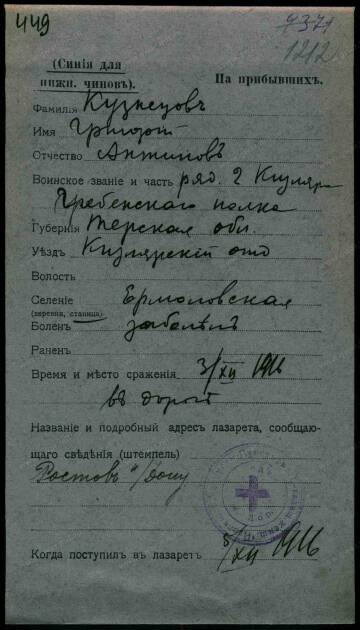 449
9371
1212
(Синія для
нижн. чиновъ).
На прибывшихъ.
Фамилія Кузнецовъ
Имя Григорій
Отчество Антиповъ
Воинское званіе и часть ряд. 2 Кизляро
Гребенскаго полка
Губернія Терская обл.
Уѣздъ Кизлярскій отд
Волость
Селеніе Ермоловская
(деревня, станица)
Боленъ заболѣлъ
Раненъ
Время и мѣсто сраженія 3/XII 1916
въ дорогѣ
Названіе и подробный адресъ лазарета, сообщаю-
щаго свѣдѣнія (штемпель)
Ростовъ н/Дону
Когда поступилъ въ лазаретъ 5/XII 1916